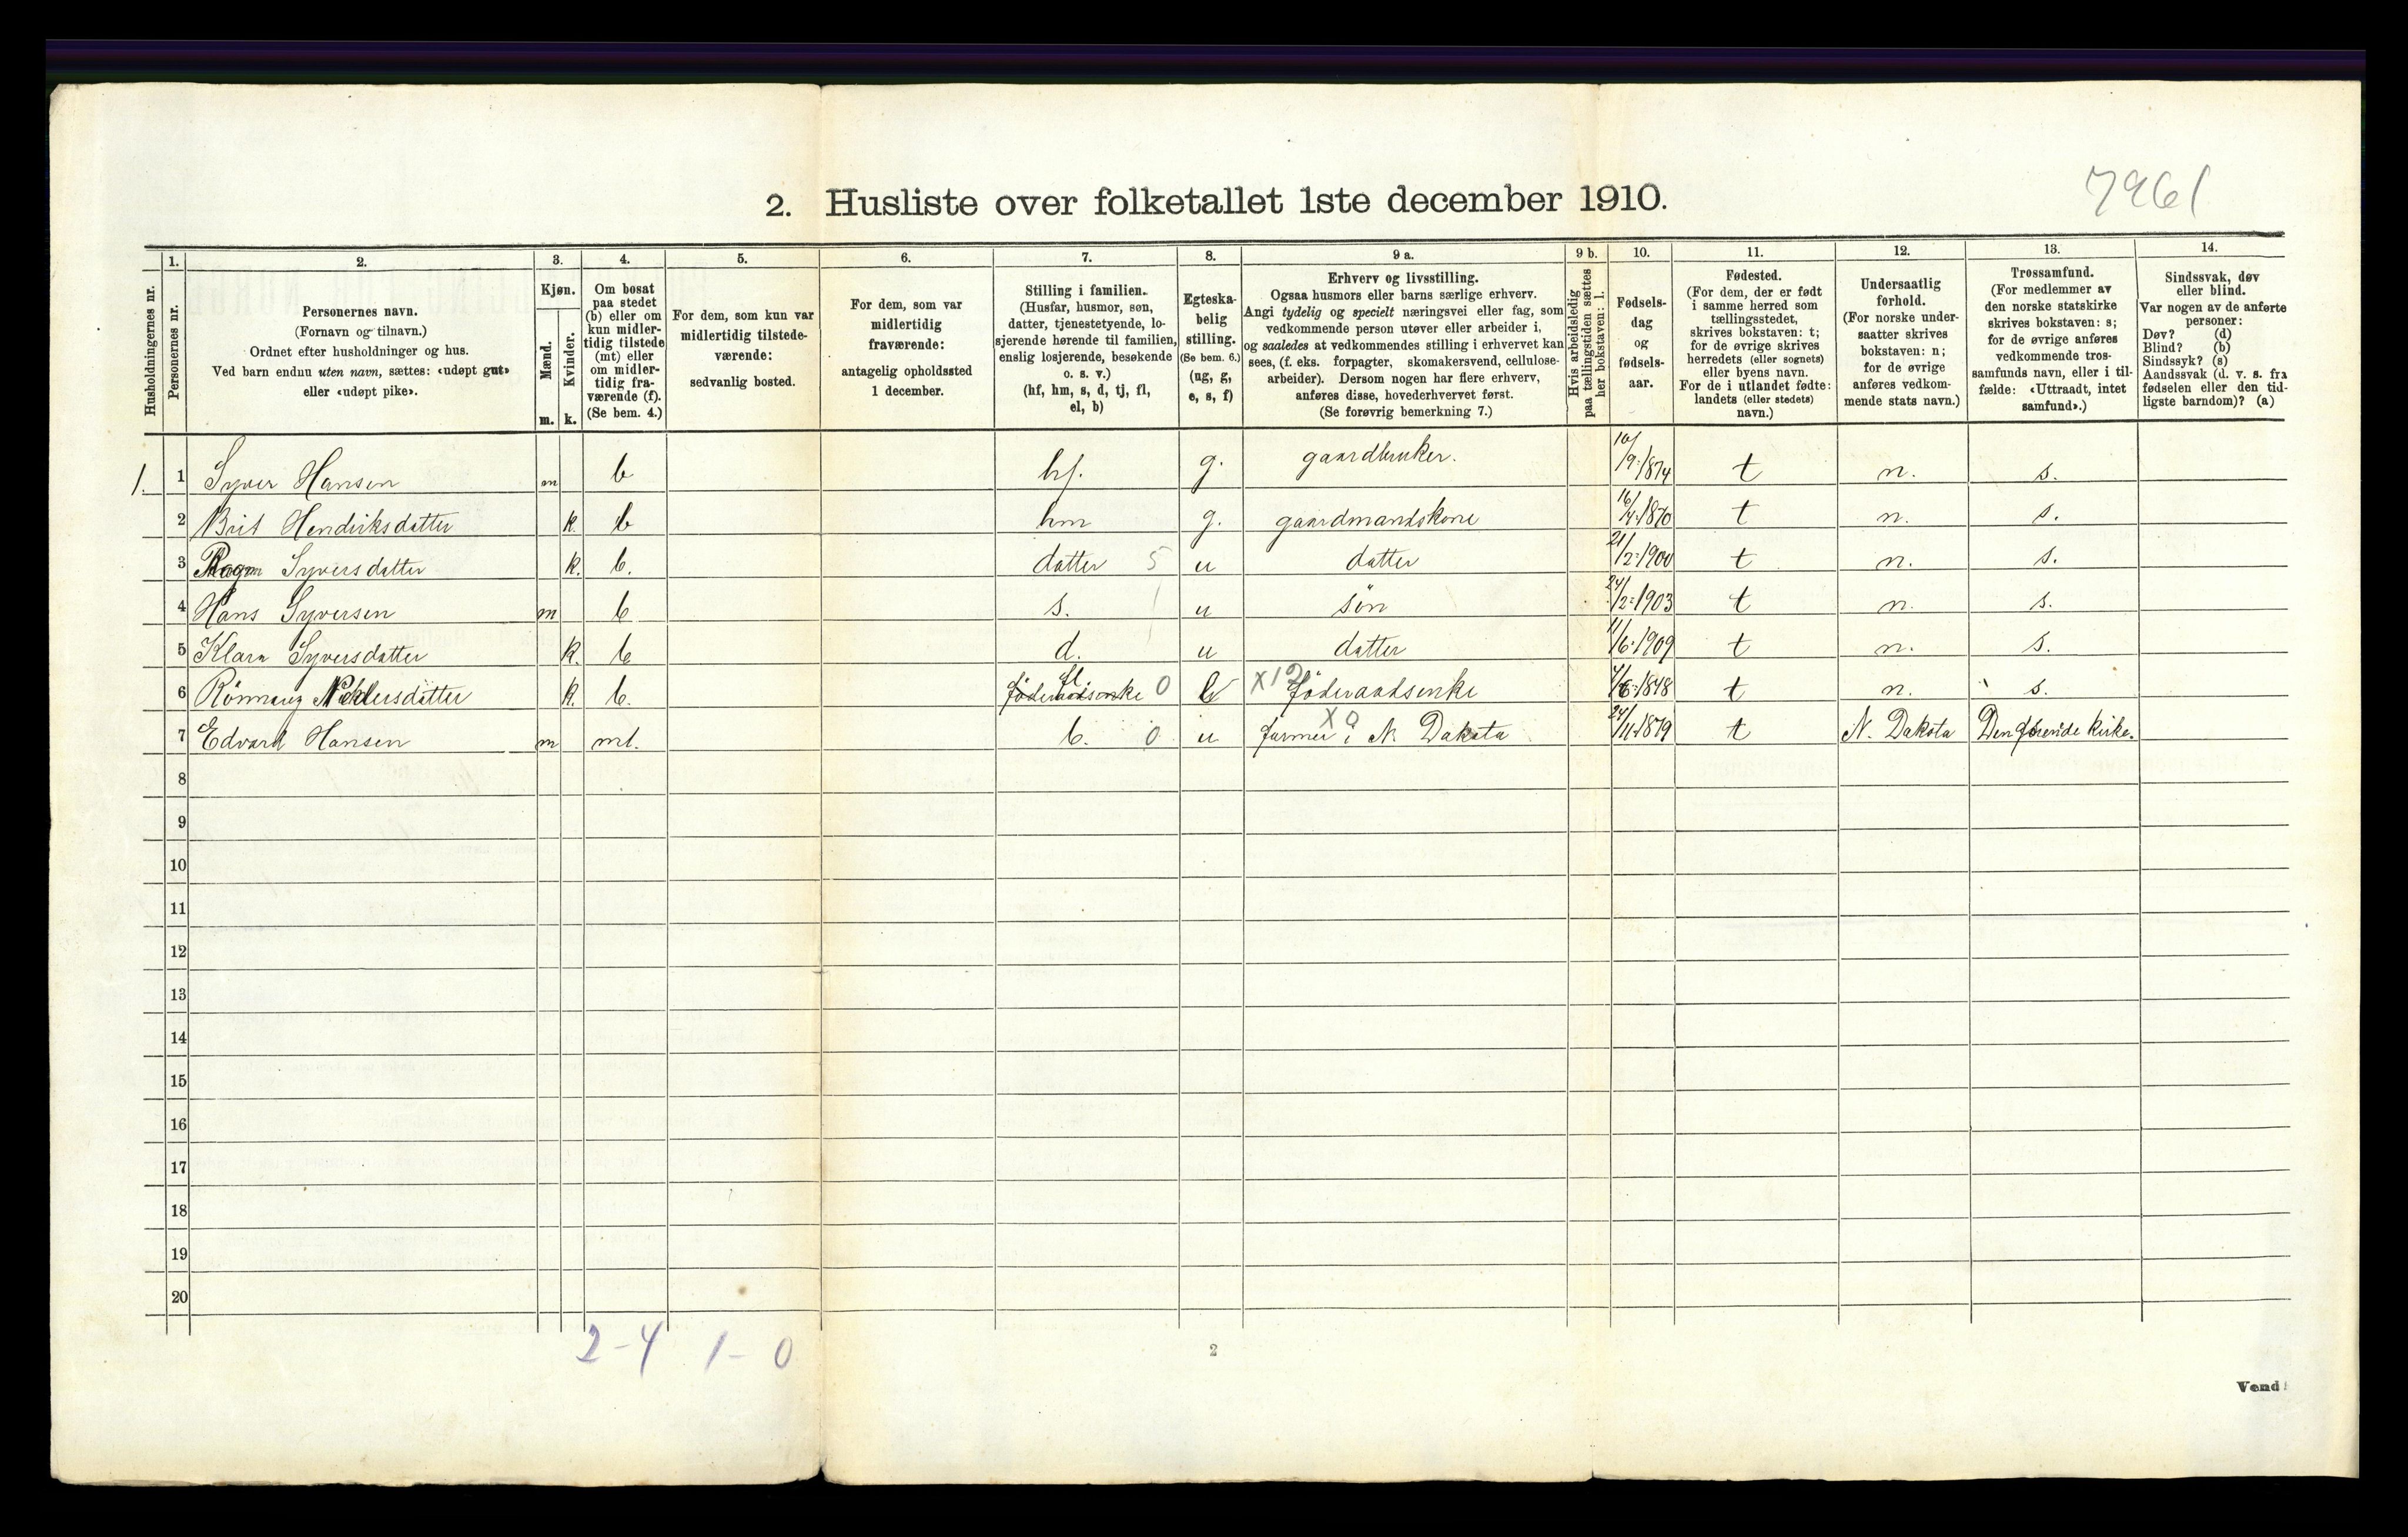 7961
2. Husliste over folketallet 1ste december 1910.
Husholdningernes nr.
1.
Personernes nr.
2.
Personernes navn.
(Fornavn og tilnavn.)
Ordnet efter husholdninger og hus.
Ved barn endnu uten navn, sættes: «udøpt gut»
eller «udøpt pike».
3.
Kjøn.
Mænd.
Kvinder.
m.
k.
4.
Om bosat
paa stedet
(b) eller om
kun midler-
tidig tilstede
(mt) eller
om midler-
tidig fra-
værende (f).
(Se bem. 4.)
5.
For dem, som kun var
midlertidig tilstede-
værende:
sedvanlig bosted.
6.
For dem, som var
midlertidig
fraværende:
antagelig opholdssted
1 december.
7.
Stilling i familien.
(Husfar, husmor, søn,
datter, tjenestetyende, lo-
sjerende hørende til familien,
enslig losjerende, besøkende
o. s. v.)
(hf, hm, s, d, tj, fl,
el, b)
8.
Egteska-
belig
stilling.
(Se bem. 6.)
(ug, g,
e, s, f)
9 a.
Erhverv og livsstilling.
Ogsaa husmors eller barns særlige erhverv.
Angi tydelig og specielt næringsvei eller fag, som
vedkommende person utøver eller arbeider i,
og saaledes at vedkommendes stilling i erhvervet kan
sees, (f. eks. forpagter, skomakersvend, cellulose-
arbeider). Dersom nogen har flere erhverv,
anføres disse, hovederhvervet først.
(Se forøvrig bemerkning 7.)
9 b.
Hvis arbeidsledig
paa tællingstiden sættes
her bokstaven: l.
10.
Fødsels-
dag
og
fødsels-
aar.
11.
Fødested.
(For dem, der er født
i samme herred som
tællingsstedet,
skrives bokstaven: t;
for de øvrige skrives
herredets (eller sognets)
eller byens navn.
For de i utlandet fødte:
landets (eller stedets)
navn.)
12.
Undersaatlig
forhold.
(For norske under-
saatter skrives
bokstaven: n;
for de øvrige
anføres vedkom-
mende stats navn.)
13.
Trossamfund.
(For medlemmer av
den norske statskirke
skrives bokstaven: s;
for de øvrige anføres
vedkommende tros-
samfunds navn, eller i til-
fælde: «Uttraadt, intet
samfund».)
14.
Sindssvak, døv
eller blind.
Var nogen av de anførte
personer:
Døv? (d)
Blind? (b)
Sindssyk? (s)
Aandssvak (d. v. s. fra
fødselen eller den tid-
ligste barndom)? (a)
1. 1 Syver Hansen m b hf. g. gaardbruker. 10/9.1874 t n. s.
2 Brit Hendriksdatter k. b hm g. gaardmandskone 16/4.1870 t n. s.
3 Syversdatter k. b. datter 5 u datter 21/2.1900 t n. s.
4 Hans Syversen m b s. 1 u søn 24/2.1903 t n. s.
5 Klara Syversdatter k. b d. 1 u datter 11/6.1909 t n. s.
6 Rönnaug k. b. föderaadsenke fl 0 X12 föderaadsenke 1848 t n. s.
7 Edvard Hansen m mt. b. 0 u farmer i N. Dakota X a 24/11.1879 t N. Dakota Den kirke.
8
9
10
11
12
13
14
15
16
17
18
19
20
2-4 1-0
2
Vend